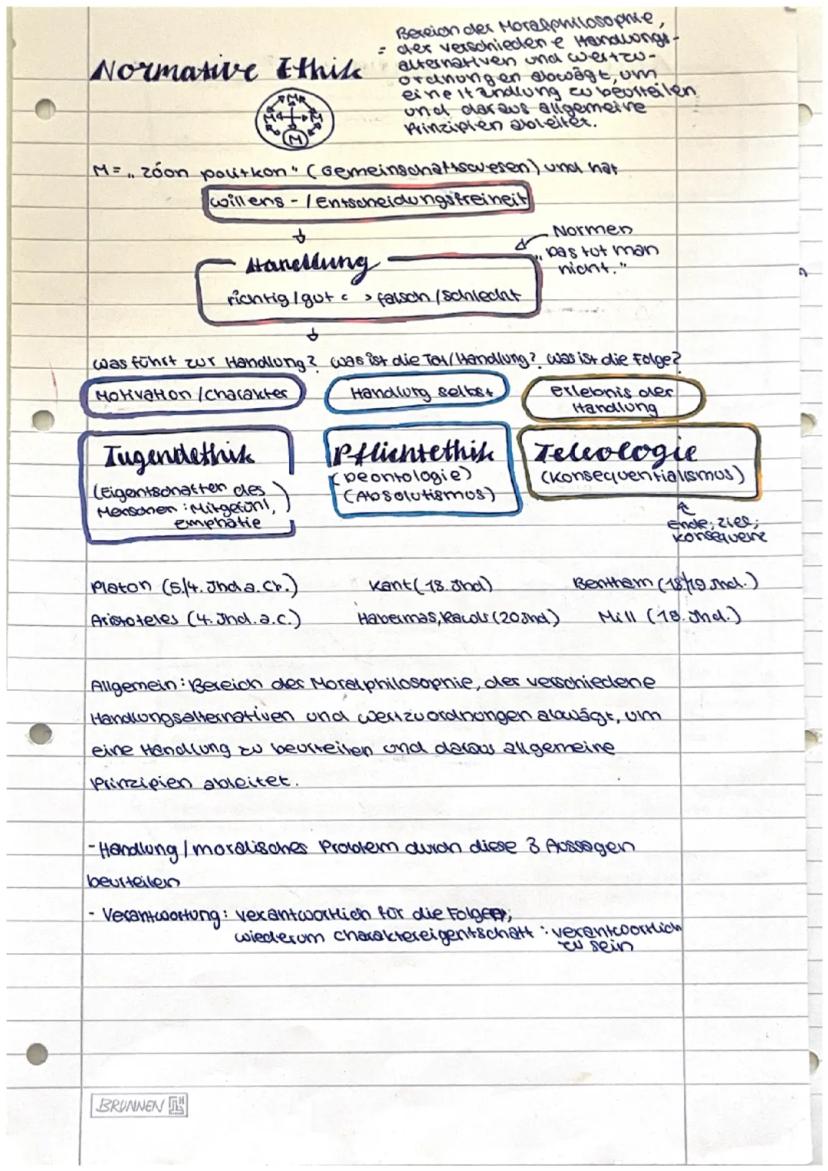 Normative Ethik
= Bereich der Moralphilosophie,
der verschiedene Handlungs-
alternativen und wertzu-
ordnungen abwägt, um
eine Handlung zu beurteilen
und daraus allgemeine
Prinzipien ableitet.
M M M
M
M = „zóon politkon" (Gemeinschaftswesen) und hat
willens - / Entscheidungsfreiheit
Normen
„Das tut man
nicht."
Handlung
richtig/gut < > falsch/schlecht
was führt zur Handlung? was ist die Tat/Handlung? was ist die Folge?
Motivation/Charakter
Handlung selbst
erlebnis der
Handlung
Tugendethik
(Eigentschaften des
Menschen: Mitgefühl,
emphatie)
Pflichtethik
(Deontologie)
(Absolutismus)
Teleologie
(Konsequentialismus)
Ende, Ziel,
Konsequenz
Platon (5/4. Jhd a. Ch.) Kant (18. Jhd) Bentham (18/19 Jhd.)
Aristoteles (4. Jhd. a.c.) Habermas, Rawls (20 Jhd) Mill (19. Jhd.)
Allgemein: Bereich des Moralphilosophie, der verschiedene
Handlungsalternativen und wertzuordnungen abwägt, um
eine Handlung zu beurteilen und daraus allgemeine
Prinzipien ableitet.
- Handlung/moralisches Problem durch diese 3 Aussagen
beurteilen
- Verantwortung: verantwortlich für die Folgen;
wiederum charaktereigentschaft: verantwortlich
zu sein
BRUNNEN